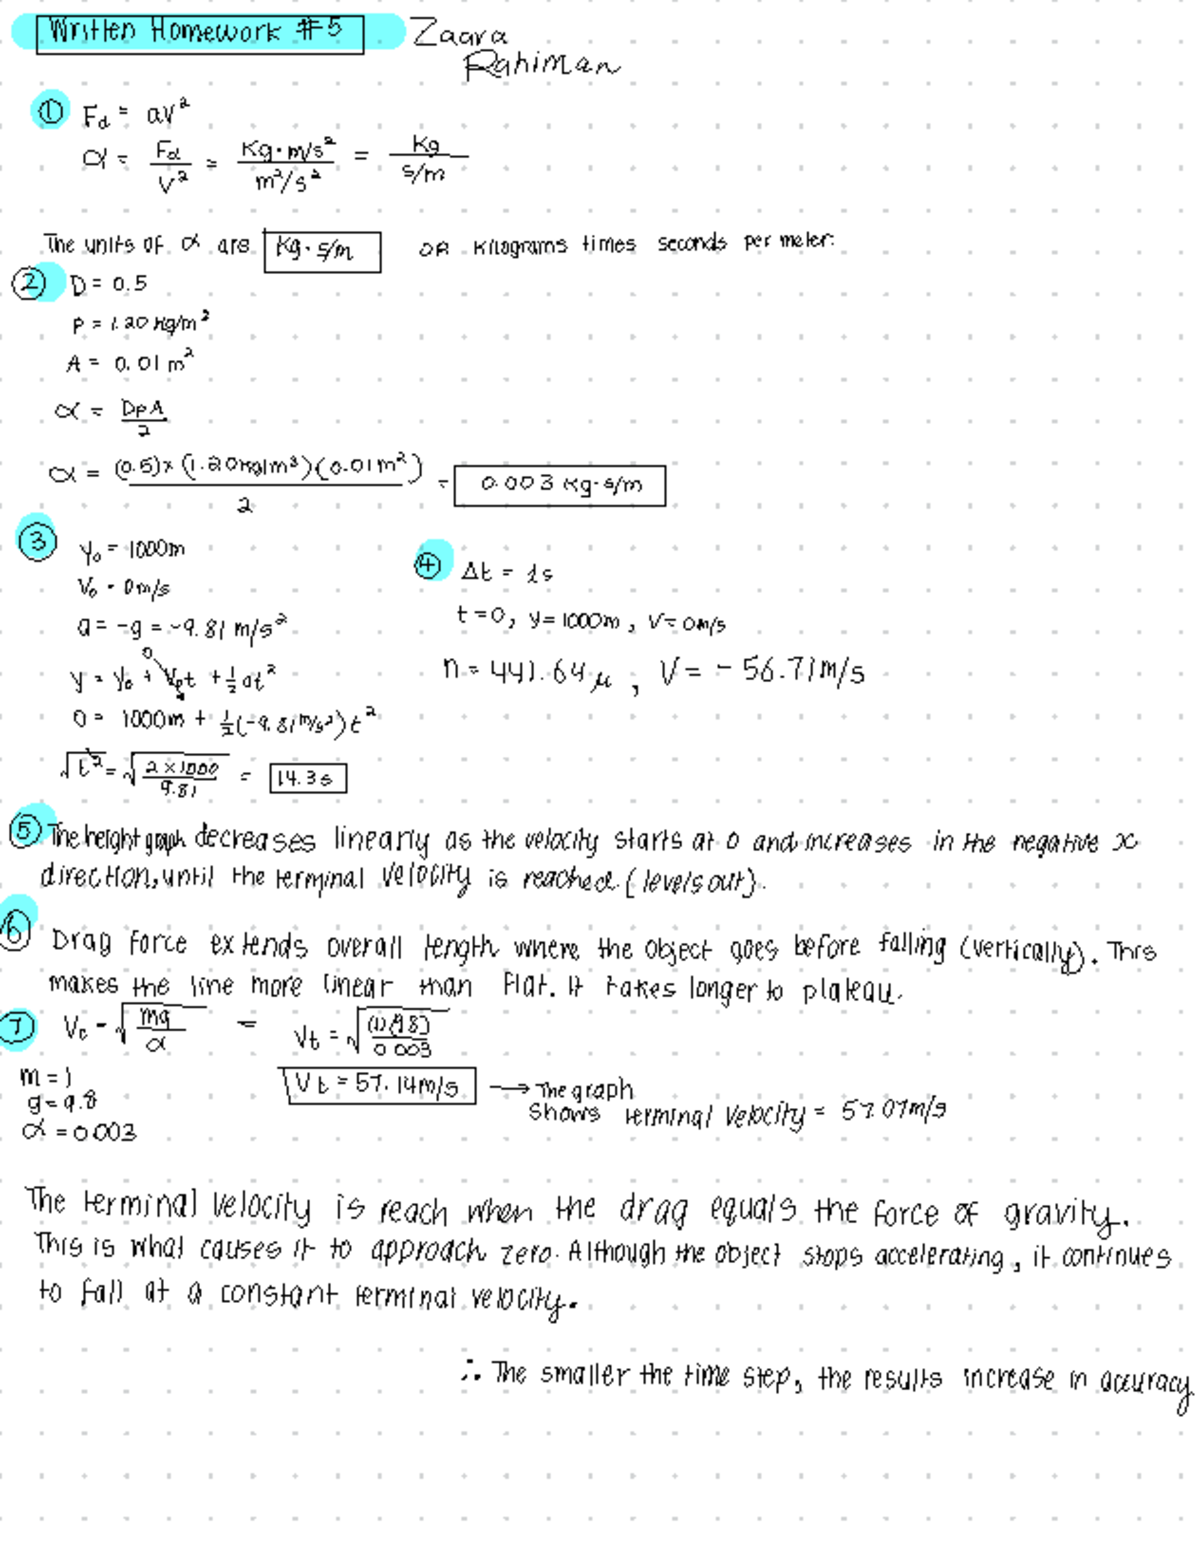 Written Homework #5 Zaara
Rahiman
① Fd = av²
α = Fd/v² = Kg·m/s² / m²/s² = Kg / s/m
The units of α are Kg·s/m OR kilograms times seconds per meter.
② D = 0.5
P = 1.20 kg/m³
A = 0.01 m²
α = DpA/2
α = (0.5)x(1.20kg/m³)(0.01m²) / 2 = 0.003 kg·s/m
③ y₀ = 1000m
V₀ = 0m/s
a = -g = -9.81 m/s²
y = y₀ + V₀t + ½at² 0
0 = 1000m + ½(-9.81m/s²)t²
√t² = √2x1000/9.81 = 14.3s
④ Δt = 1s
t=0, y=1000m, V=0m/s
n=441.64μ, V = -56.71m/s
⑤ The height graph decreases linearly as the velocity starts at 0 and increases in the negative x
direction, until the terminal velocity is reached. (levels out).
⑥ Drag force extends overall length where the object goes before falling (vertically). This
makes the line more linear than flat. It takes longer to plateau.
⑦ Vt = √mg/α = Vt = √(1)(9.8)/0.003
m=1
g=9.8
α=0.003
Vt = 57.14m/s → The graph
shows terminal velocity = 57.07m/s
The terminal velocity is reach when the drag equals the force of gravity.
This is what causes it to approach zero. Although the object stops accelerating, it continues
to fall at a constant terminal velocity.
∴ The smaller the time step, the results increase in accuracy